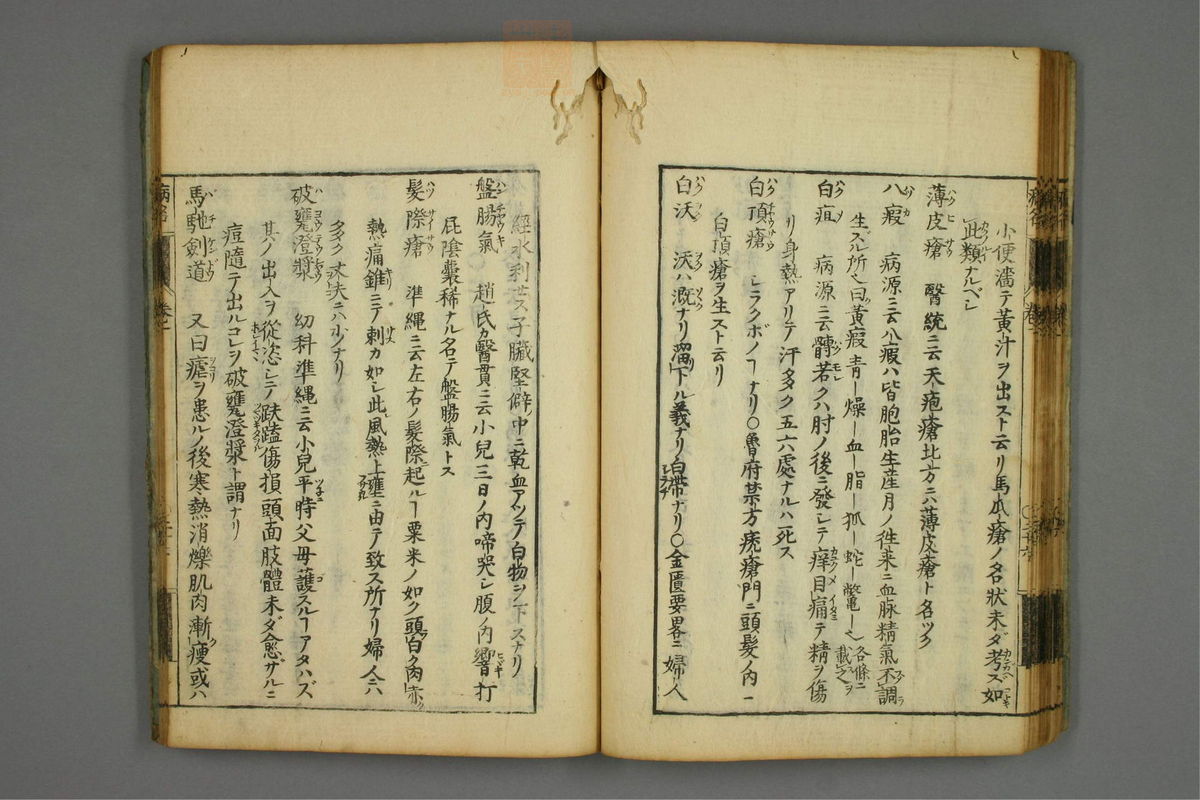 小便濇テ黄汁ヲ出スト云リ馬瓜瘡ノ名状未ダ考ヘズ如
此類ナルベシ
薄皮瘡 醫統ニ云天疱瘡北方ニハ薄皮瘡ト名ツク
八瘕 病源ニ云八瘕ハ皆胞胎生産月ノ徃来ニ血脉精氣不調
生ズル所ㇳ曰黄瘕青ー燥ー血ー脂ー狐ー蛇ー鼈ー 各條ニ載之
白疽 病源ニ云髆若クハ肘ノ後ニ發シテ痒目痛テ精ヲ傷
リ身熱アリテ汗多ク五六處ナルハ死ス
白頂瘡 シラクボノヿナリ〇魯府禁方疣瘡門ニ頭髮ノ内一
白頂瘡ヲ生スト云リ
白沃 沃ハ漑ナリ溜下ル義ナリ白帶ナリ〇金匱要畧ニ婦人
經水利セス子臟堅僻中ニ乾血アツテ白物ヲ下スナリ
盤腸氣 趙氏カ醫貫ニ云小兒三日ノ内啼哭シ腹ノ内響打
屁陰囊稀ナル名テ盤腸氣トス
髮際瘡 準縄ニ云左右ノ髮際起ルヿ粟米ノ如ク頭白ク肉赤ク
熱痛錐ニテ刺カ如シ此風熱上壅ニ由テ致ス所アリ婦人ニハ
多ク丈夫ニハ少ナリ
破甕澄漿 幼科準縄ニ云小兒平時父母護スルヿアタハズ
其ノ出入ヲ從恣シテ跌磕傷損頭面肢體未ダ愈ザルニ
痘隨テ出ルコレヲ破甕澄漿ト謂ナリ
馬馳劍道 又曰瘧ヲ患ルノ後寒熱消爍肌肉漸痩或ハ